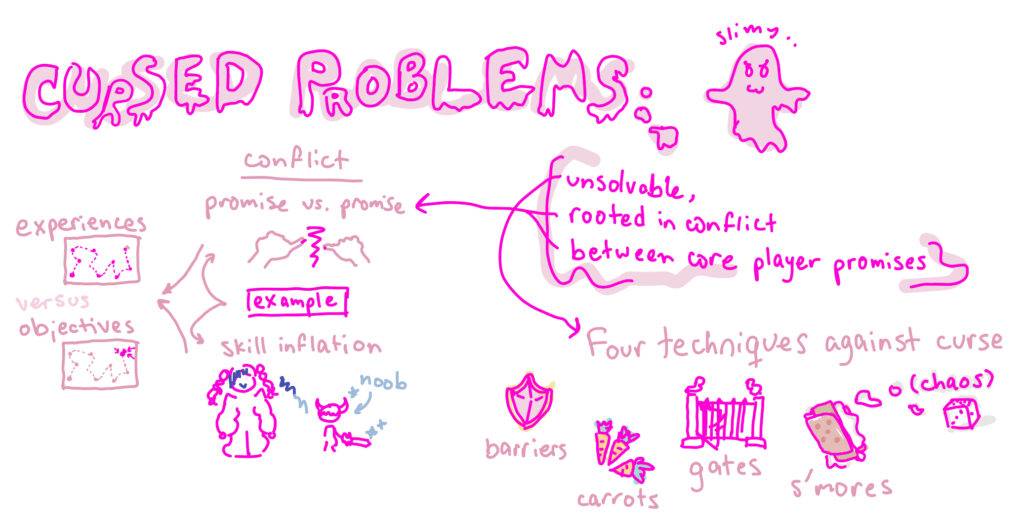 CURSED PROBLEMS:
slimy..
conflict
promise vs. promise
experiences
versus
objectives
example
skill inflation
noob
unsolvable,
rooted in conflict
between core player promises
Four techniques against curse
(chaos)
barriers
carrots
gates
s'mores